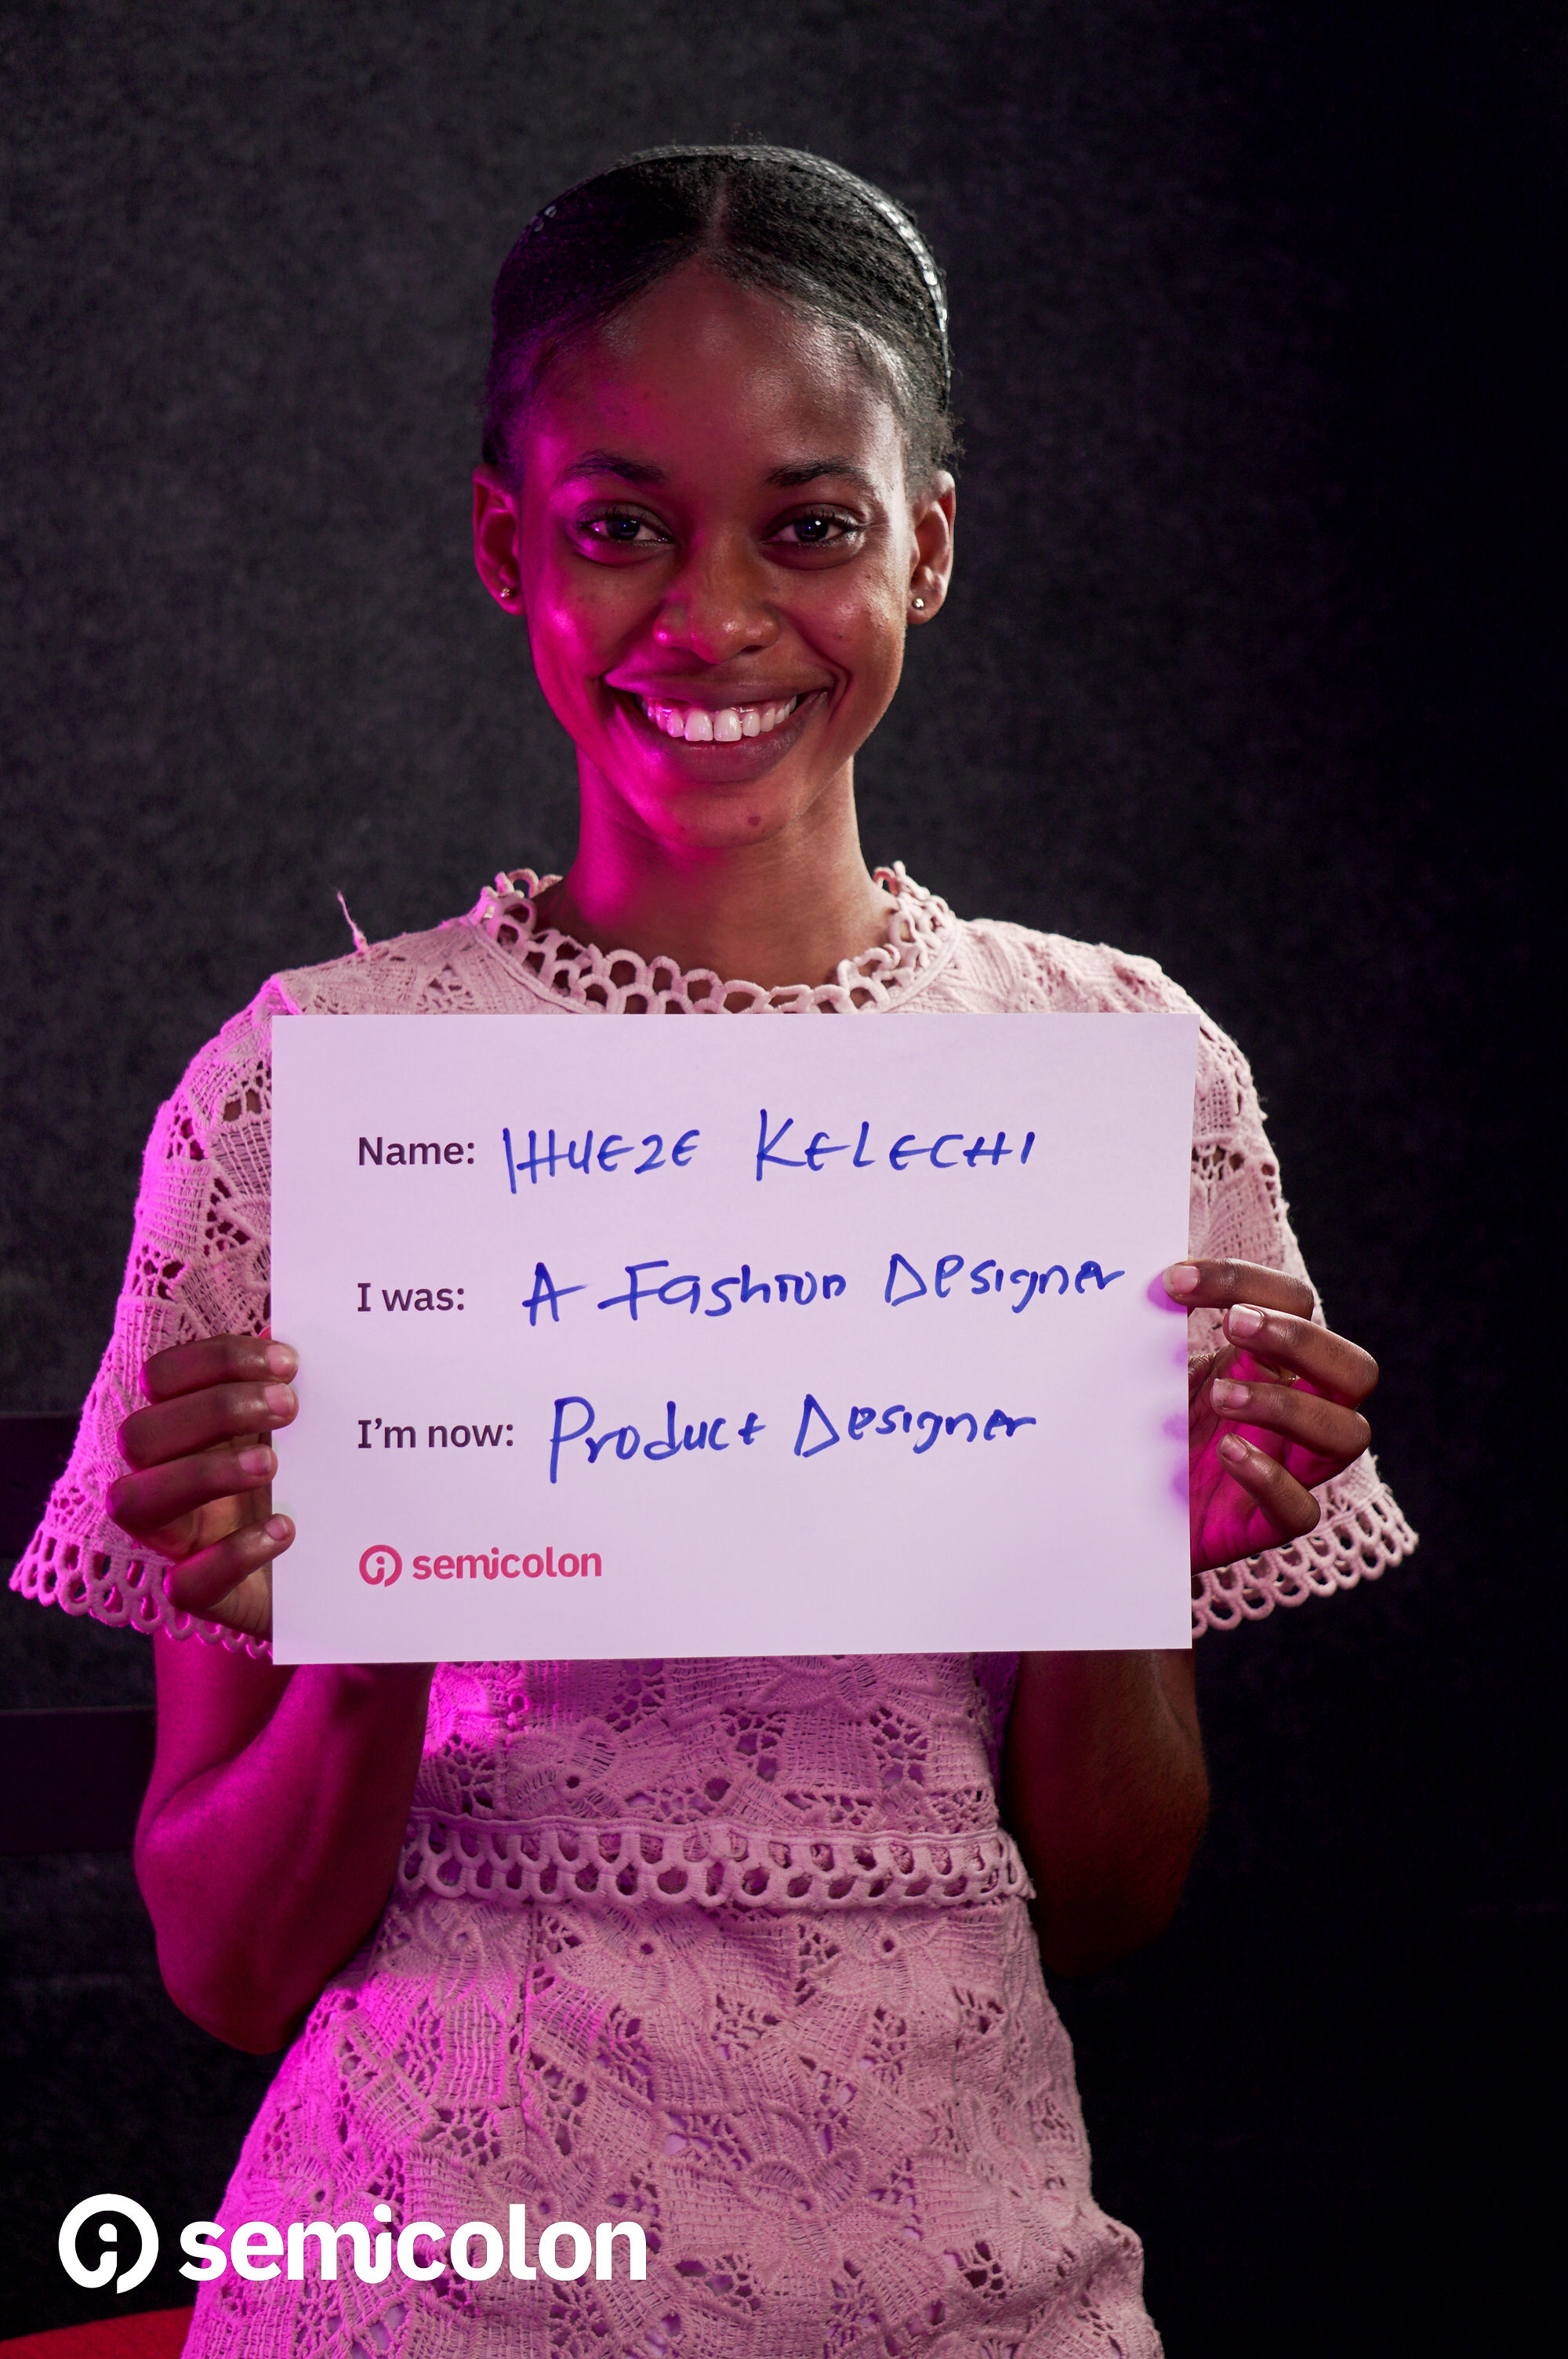 Name: IHUEZE KELECHI
I was: A Fashion Designer
I'm now: Product Designer
semicolon
semicolon